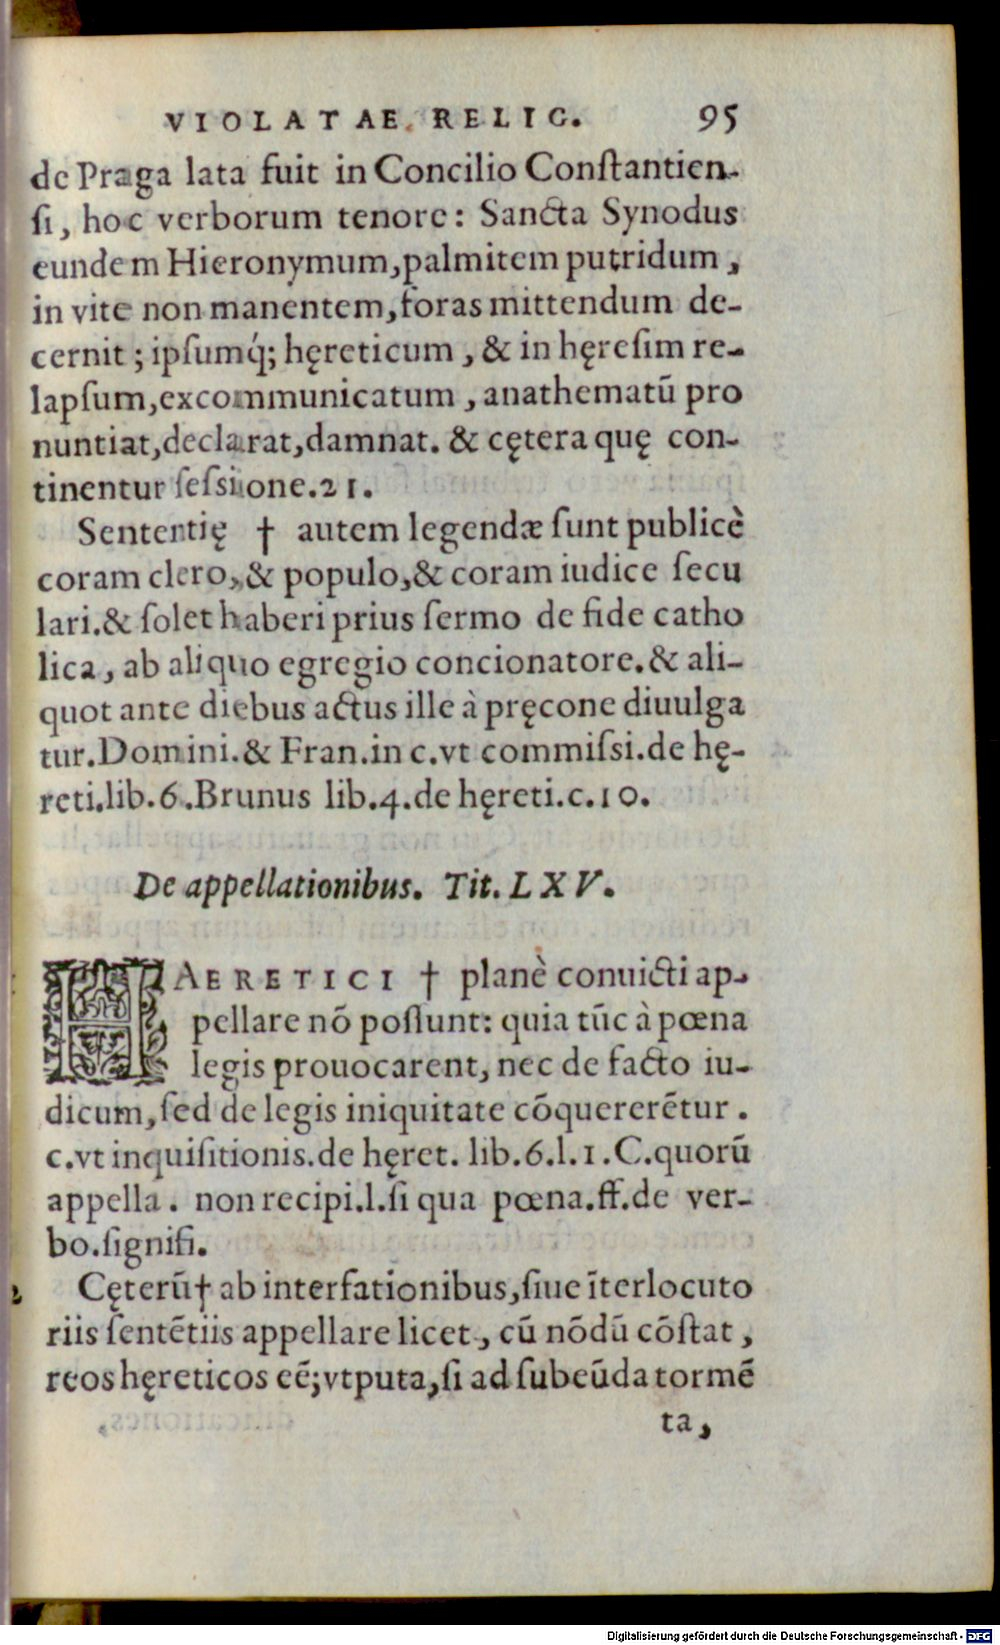 VIOLATAE. RELIG. 95
de Praga lata fuit in Concilio Conſtantien-
ſi, hoc verborum tenore: Sancta Synodus
eundem Hieronymum, palmitem putridum,
in vite non manentem, foras mittendum de-
cernit; ipſumq́; hęreticum, & in hęreſim re-
lapſum, excommunicatum, anathematū pro
nuntiat, declarat, damnat. & cętera quę con-
tinentur ſeſsione. 21.
Sententię † autem legendæ ſunt publicè
coram clero, & populo, & coram iudice ſecu
lari. & ſolet haberi prius ſermo de fide catho
lica, ab aliquo egregio concionatore. & ali-
quot ante diebus actus ille à pręcone diuulga
tur. Domini. & Fran. in c. vt commiſsi. de hę-
reti. lib. 6. Brunus lib. 4. de hęreti. c. 10.
De appellationibus. Tit. LXV.
HAERETICI † planè conuicti ap-
pellare nō poſſunt: quia tūc à pœna
legis prouocarent, nec de facto iu-
dicum, ſed de legis iniquitate cōquererētur.
c. vt inquiſitionis. de hęret. lib. 6. l. 1. C. quorū
appella. non recipi. l. ſi qua pœna. ff. de ver-
bo. ſignifi.
2 Cęterū † ab interfationibus, ſiue īterlocuto
riis ſentētiis appellare licet, cū nōdū cōſtat,
reos hęreticos eē; vtputa, ſi ad ſubeūda tormē
ta,
Digitalisierung gefördert durch die Deutsche Forschungsgemeinschaft - DFG